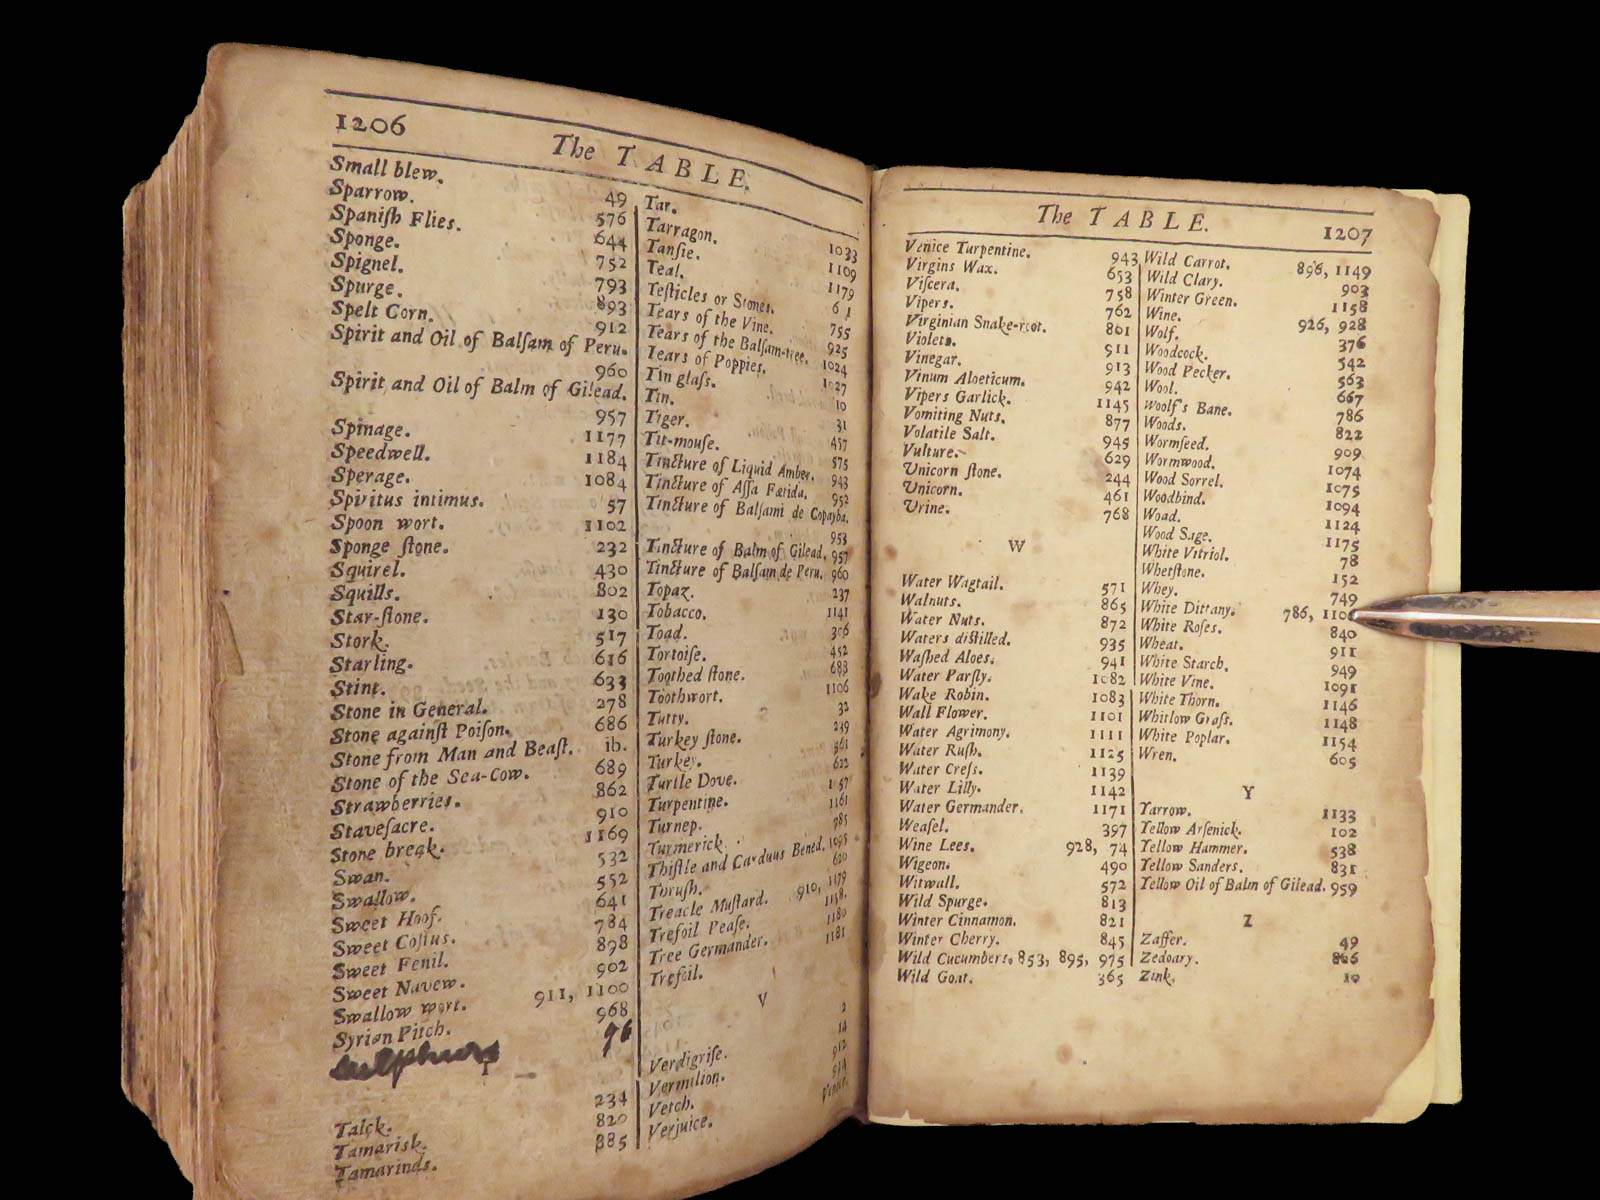 1206
The TABLE.
Small blew. 49
Sparrow. 576
Spaniſh Flies. 644
Sponge. 752
Spignel. 793
Spurge. 893
Spelt Corn. 912
Spirit and Oil of Balſam of Peru.
960
Spirit and Oil of Balm of Gilead.
957
Spinage. 1177
Speedwell. 1184
Sperage. 1084
Spiritus intimus. 57
Spoon wort. 1102
Sponge ſtone. 232
Squirel. 430
Squills. 802
Star-ſtone. 130
Stork. 517
Starling. 616
Stint. 633
Stone in General. 278
Stone againſt Poiſon. 686
Stone from Man and Beaſt. ib.
Stone of the Sea-Cow. 689
Strawberries. 862
Staveſacre. 910
Stone break. 1169
Swan. 532
Swallow. 552
Sweet Hoof. 641
Sweet Coſtus. 784
Sweet Fenil. 898
Sweet Navew. 902
Swallow wort. 911, 1100
Syrian Pitch. 968
sulphurs 96
T
Talck. 234
Tamarisk. 820
Tamarinds. 885
Tar. 1033
Tarragon. 1109
Tanſie. 1179
Teal.
Teſticles or Stones. 755
Tears of the Vine. 925
Tears of the Balſam-tree. 1024
Tears of Poppies. 1027
Tin glaſs. 10
Tin. 31
Tiger. 457
Tit-mouſe. 575
Tincture of Liquid Amber. 943
Tincture of Aſſa Fœtida. 952
Tincture of Balſami de Copayba.
953
Tincture of Balm of Gilead. 957
Tincture of Balſam de Peru. 960
Topaz. 237
Tobacco. 1141
Toad. 306
Tortoiſe. 452
Toothed ſtone. 683
Toothwort. 1106
Tutty. 32
Turkey ſtone. 249
Turkey. 561
Turtle Dove. 622
Turpentine. 1057
Turnep. 1161
Turmerick. 785
Thiſtle and Carduus Bened. 1095
Thruſh. 620
Treacle Muſtard. 910, 1179
Trefoil Peaſe. 1158.
Tree Germander. 1180
Trefoil. 1181
V
Verdigriſe. 2
Vermilion. 14
Vetch. 912
Verjuice. 934
Venice.
The TABLE.
1207
Venice Turpentine. 943
Virgins Wax. 653
Viſcera. 758
Vipers. 762
Virginian Snake-root. 801
Violets. 911
Vinegar. 913
Vinum Aloeticum. 942
Vipers Garlick. 1145
Vomiting Nuts. 877
Volatile Salt. 945
Vulture. 629
Unicorn ſtone. 244
Unicorn. 461
Urine. 768
W
Water Wagtail. 571
Walnuts. 865
Water Nuts. 872
Waters diſtilled. 935
Waſhed Aloes. 941
Water Parſly. 1082
Wake Robin. 1083
Wall Flower. 1101
Water Agrimony. 1111
Water Ruſh. 1125
Water Creſs. 1139
Water Lilly. 1142
Water Germander. 1171
Weaſel. 397
Wine Lees. 928, 74
Wigeon. 490
Witwall. 572
Wild Spurge. 813
Winter Cinnamon. 821
Winter Cherry. 845
Wild Cucumbers. 853, 895, 975
Wild Goat. 365
Wild Carrot. 896, 1149
Wild Clary. 903
Winter Green. 1158
Wine. 926, 928
Wolf. 376
Woodcock. 542
Wood Pecker. 563
Wool. 667
Woolf's Bane. 786
Woods. 822
Wormſeed. 909
Wormwood. 1074
Wood Sorrel. 1075
Woodbind. 1094
Woad. 1124
Wood Sage. 1175
White Vitriol. 78
Whetſtone. 152
Whey. 749
White Dittany. 786,
White Roſes. 840
Wheat. 911
White Starch. 949
White Vine. 1091
White Thorn. 1146
Whitlow Graſs. 1148
White Poplar. 1154
Wren. 605
Y
Yarrow. 1133
Yellow Arſenick. 102
Yellow Hammer. 538
Yellow Sanders. 831
Yellow Oil of Balm of Gilead. 959
Z
Zaffer. 49
Zedoary. 806
Zink. 10